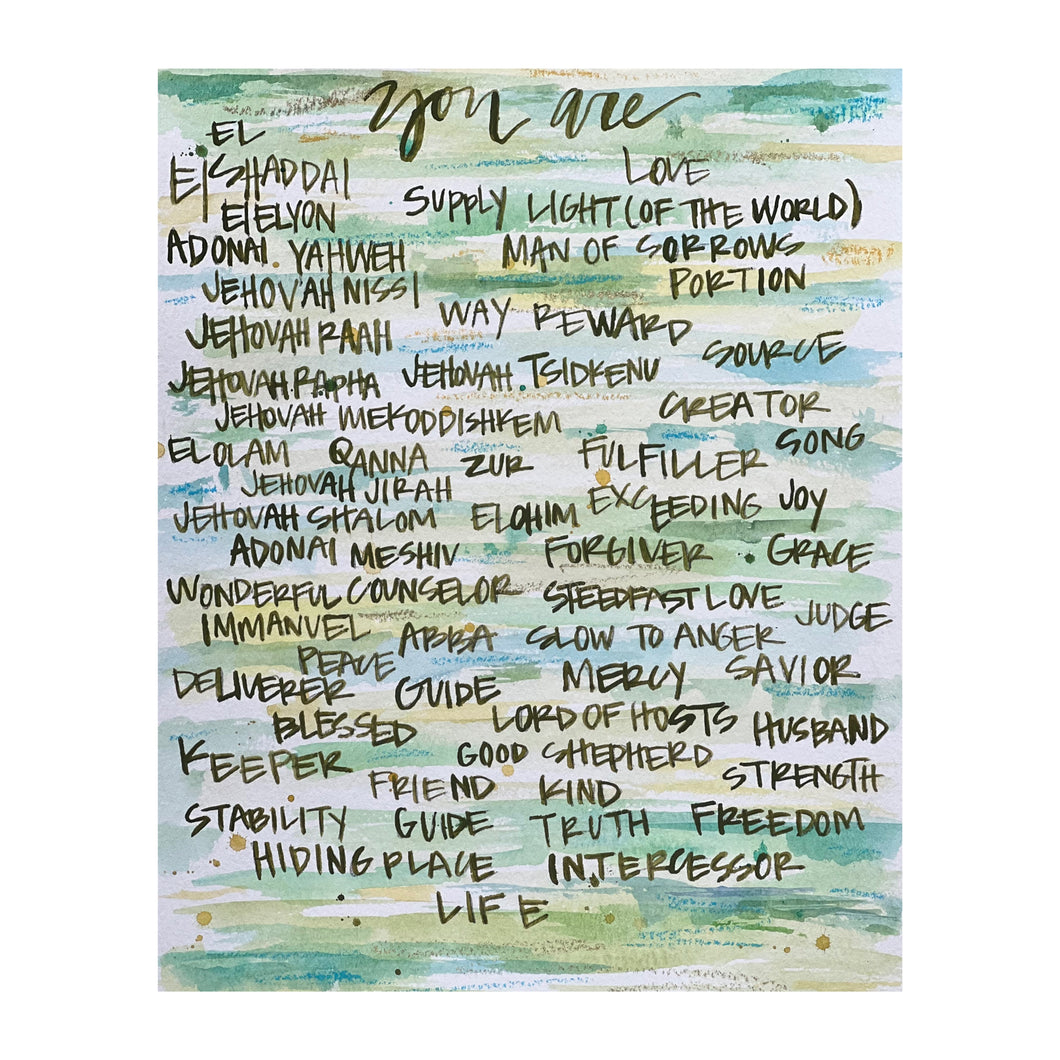 you are
EL
El SHADDAI
LOVE
El ELYON
SUPPLY LIGHT (OF THE WORLD)
ADONAI YAHWEH
MAN OF SORROWS
JEHOVAH NISSI
PORTION
JEHOVAH RAAH
WAY REWARD
SOURCE
JEHOVAH RAPHA JEHOVAH TSIDKENU
JEHOVAH MEKODDISHKEM
CREATOR
SONG
EL OLAM QANNA ZUR FULFILLER
JEHOVAH JIRAH
EXCEEDING JOY
JEHOVAH SHALOM ELOHIM
ADONAI MESHIV FORGIVER GRACE
WONDERFUL COUNSELOR STEEDFAST LOVE
JUDGE
IMMANUEL ABBA SLOW TO ANGER
PEACE
MERCY SAVIOR
DELIVERER GUIDE
BLESSED LORD OF HOSTS HUSBAND
KEEPER GOOD SHEPHERD
FRIEND KIND STRENGTH
STABILITY GUIDE TRUTH FREEDOM
HIDING PLACE INTERCESSOR
LIFE